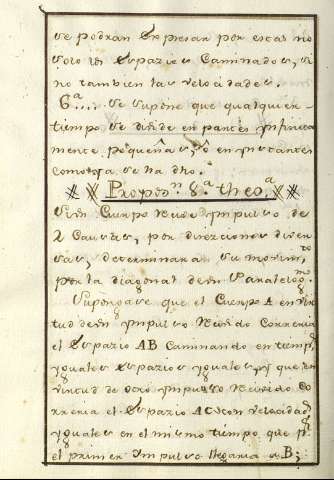 se podran Expresar por estas no
solo los Espazios Caminados, si
no tambien las velocidades.
6ª.... Se supone que qualquier
tiempo se divide en partes Ynfinita
mente pequeñas, ô en ynstantes
como ya se ha dho.
Propos.ⁿ 8.ª theo.ª
Si un Cuerpo Recive Ympulso de
2 Causas, por direzciones diver
sas, determinara su movim.to
por la diagonal de un Paralelog.mo
Supongase que el Cuerpo A en vir
tud de un Ympulso Recivido Correria
el Espazio AB Caminando en tiemp.s
yguales Espazios yguales, y que en
virtud de otro ympulso Recivido Co
rreria el Espazio AC con velocidad.s
yguales en el mismo tiempo que p.r
el primer Ympulso llegaria a B;